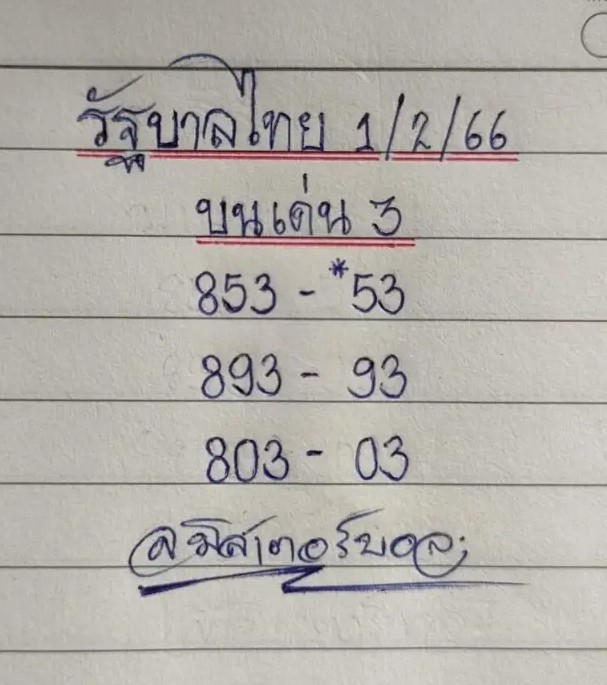 รัฐบาลไทย 1/2/66
บนเด่น 3
853 - *53
893 - 93
803 - 03
มิสเตอร์บอล